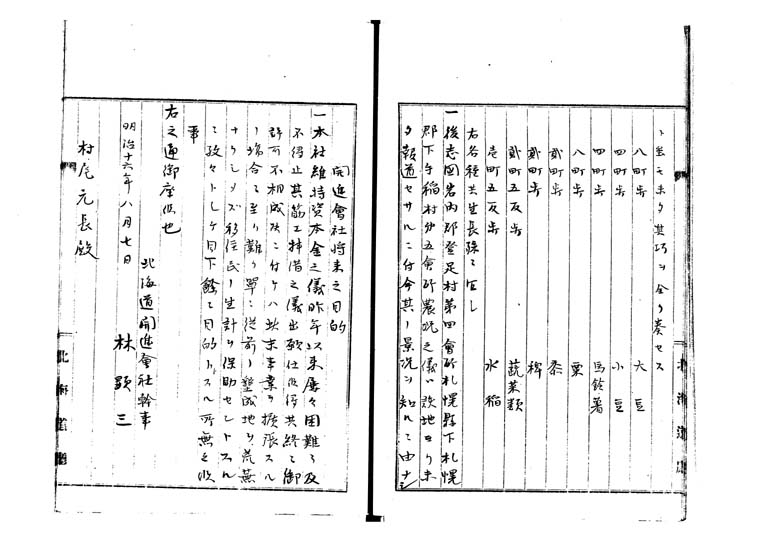 ヽ至モ未タ其巧ヲ全ク奏セス
八町歩 大豆
四町歩 小豆
四町歩 馬鈴薯
八町歩 粟
貳町歩 黍
貳町歩 稗
貳町五反歩 蔬菜類
壱町五反歩 水稲
右各種共生長殊ニ宜シ
一後志國岩内郡登足村第四會所札幌縣下札幌
郡下手稲村第五會所農況之儀ハ該地ヨリ未
タ報道セサルニ付今其ノ景況ヲ知ルニ由ナシ
開進會社将来之目的
一本社維持資本金之儀昨年以来屡々困難ニ及
不得止其筋工拝借之儀出願仕候得共終ニ御
許可不相成候ニ付テハ此末事業ヲ擴張スル
ノ場合ニ至リ難ク單ニ従前ノ墾成地ヲ荒蕪
ナラシメズ移住民ノ生計ヲ保助セントスル
ニ汲々トシテ目下餘ニ目的トスル所無之候
事
右之通御座候也
北海道開進會社幹事
明治十六年八月七日 林顕三
村尾元長殿
北海道廳